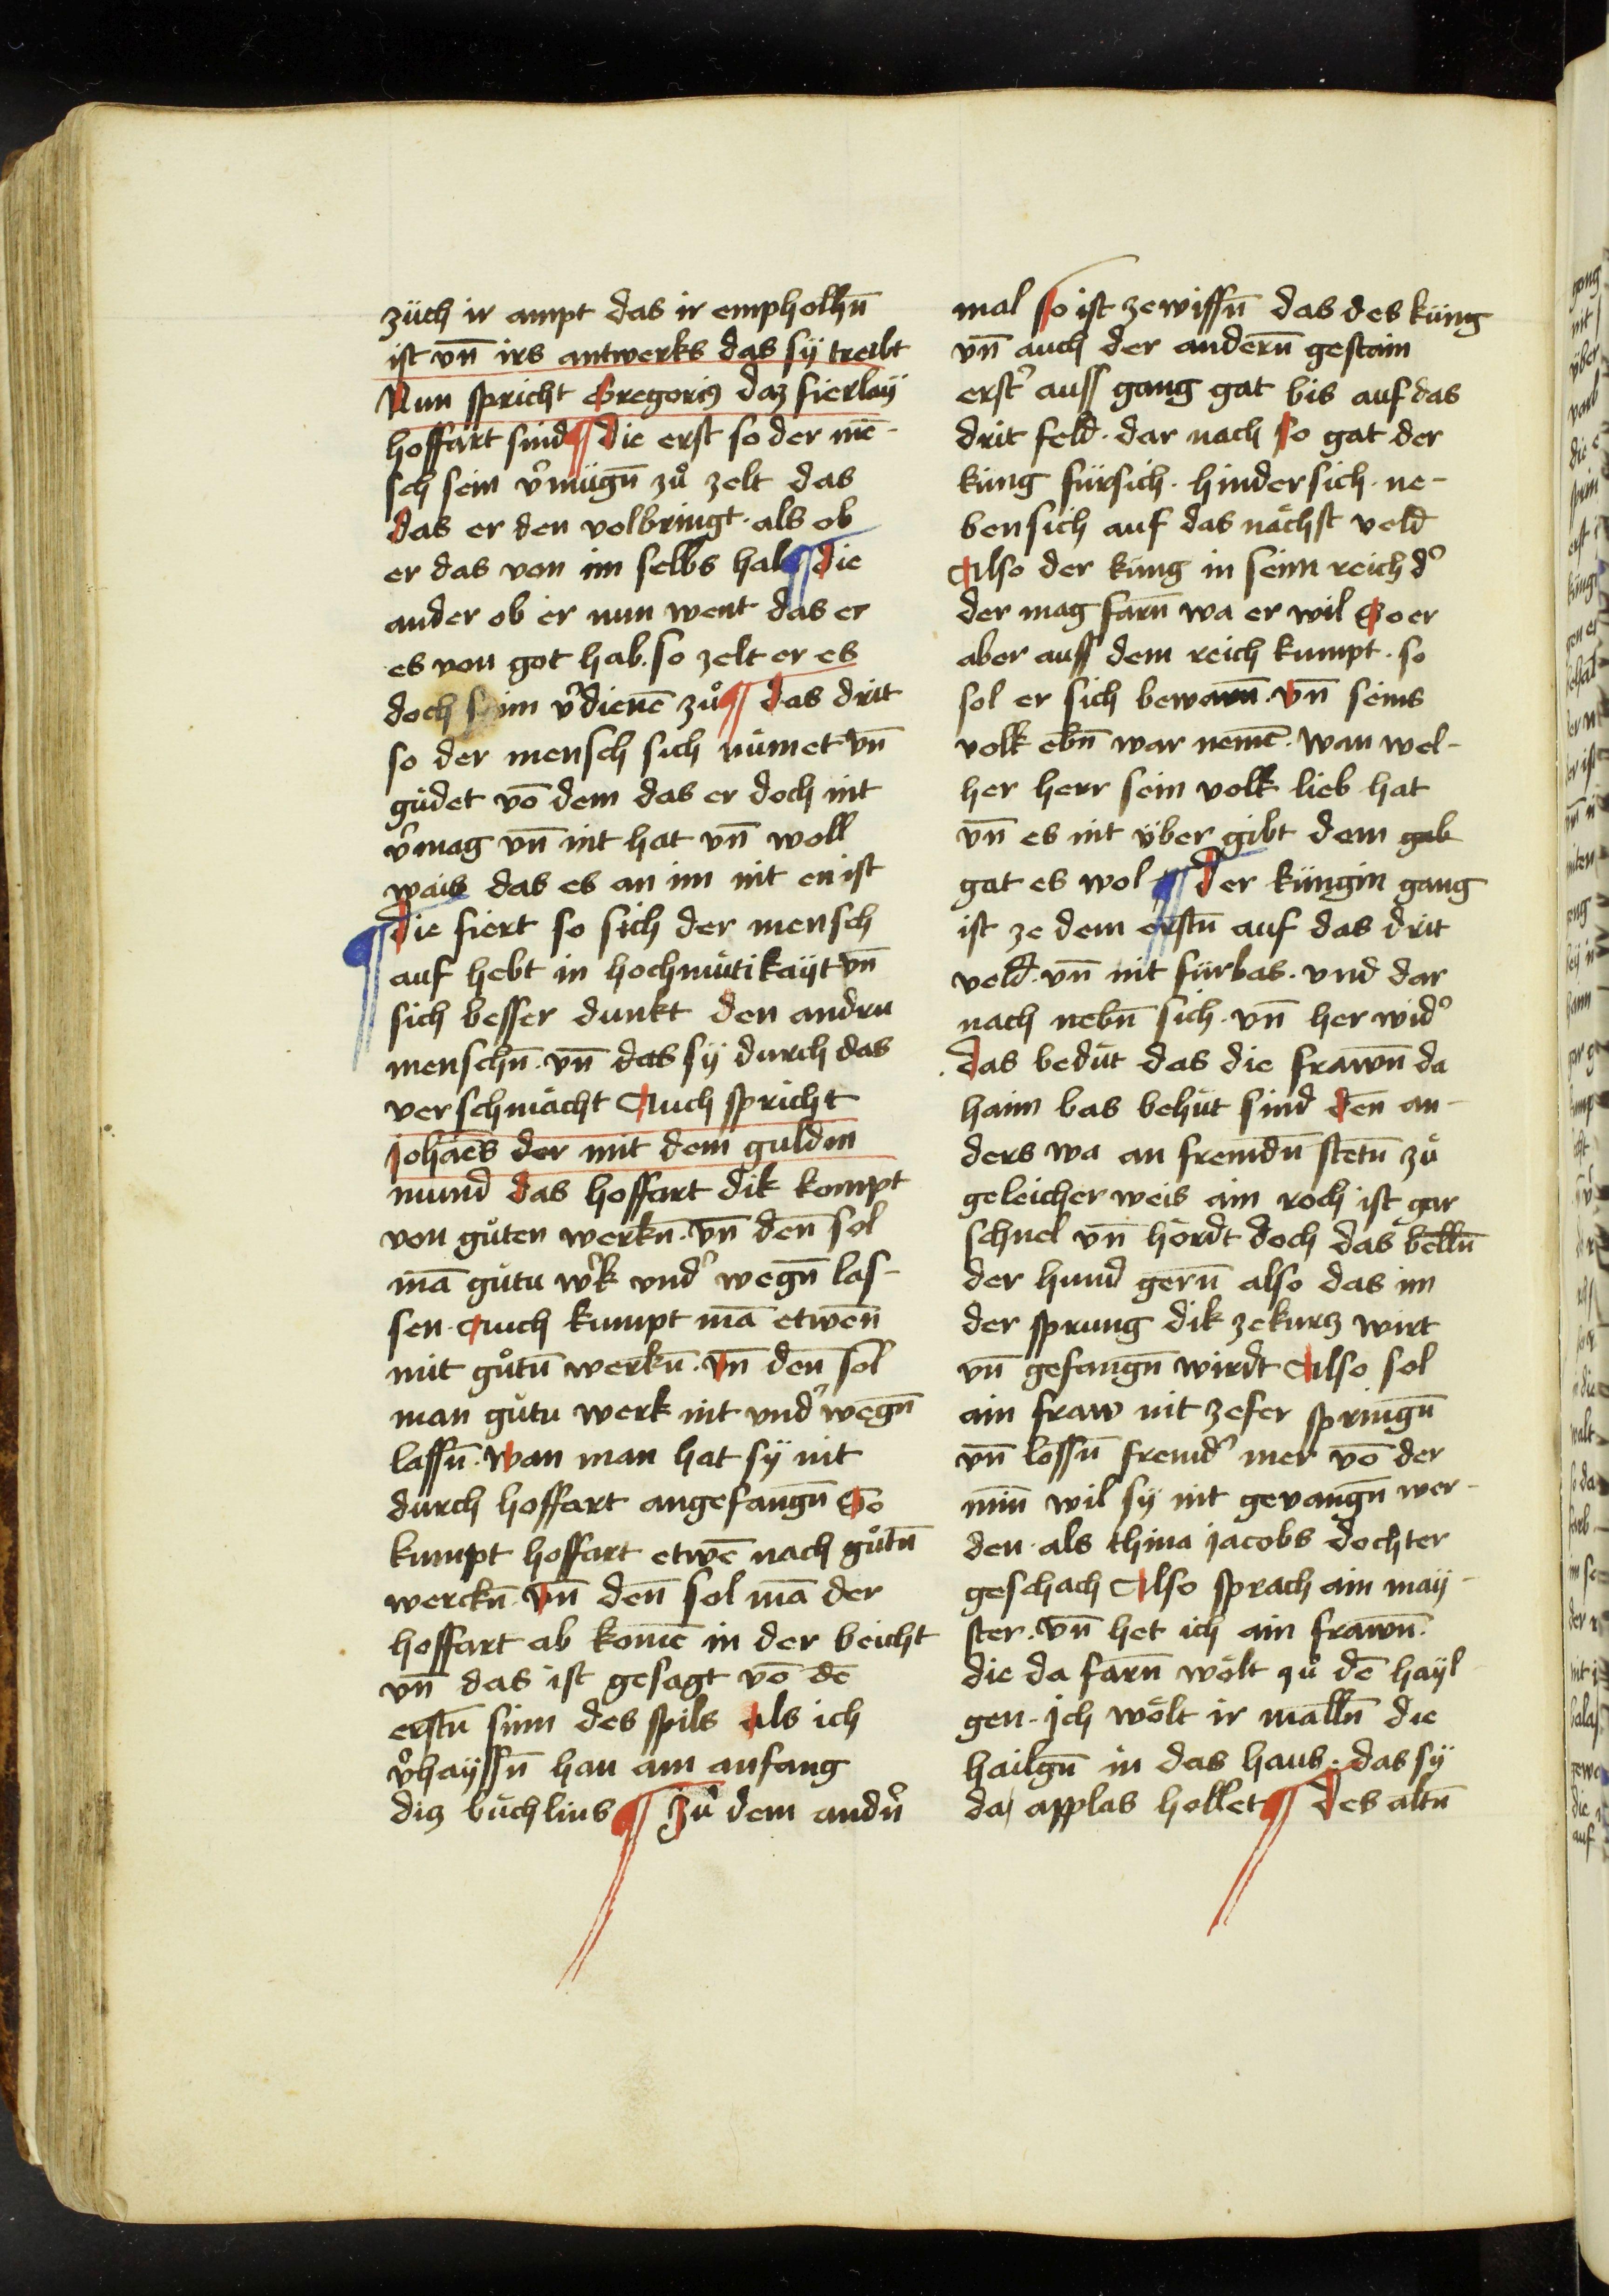 züch ir ampt das ir empholhn̄
ist vn̄ irs antwerks das sÿ treibt
Nun spricht Gregoriꝰ daz fierlaÿ
hoffart sind ¶ die erst so der mē-
sch sein v͛mügn̄ zů zelt das
das er den volbringt · als ob
er das von im selbs hab ¶ die
ander ob er nun went das er
es von got hab · so zelt er es
doch seim v͛dienē zů ¶ das drit
so der mensch sich rümet vn̄
güdet vō dem das er doch nit
v͛mag vn̄ nit hat vn̄ woll
wais das es an im nit en ist
¶ die fiert so sich der mensch
auf hebt in hochmütikaÿt vn̄
sich besser dunkt den andrn
menschn̄ · vn̄ das sÿ durch das
verschmächt Auch spricht
johāes der mit dem guldin
mund das hoffart dik kompt
von gůten werkn̄ · vn̄ den̄ sol
mā gůtu w͛k vnd͛ wegn̄ las-
sen · Auch kumpt mā etwen̄
mit gůtn̄ werkn̄ · vn̄ den̄ sol
man gůtu werk nit vnd͛ wegn̄
lassn̄ · wan man hat sÿ nit
durch hoffart angefangn̄ So
kumpt hoffart etwē nach gůtn̄
werckn̄ · vn̄ den̄ sol mā der
hoffart ab komē in der beicht
vn̄ das ist gesagt vō dē
erstn̄ sinn des spils als ich
v͛haÿssn̄ han am anfang
diz büchlins ¶ Zů dem andn͛
mal so ist zewissn̄ das des küng
vn̄ auch der andern̄ gestain
erst͛ auss gang gat bis auf das
drit feld · dar nach so gat der
küng fürsich · hindersich · ne-
bensich auf das nächst veld
Also der küng in seim reich d͛
der mag farn̄ wa er wil So er
aber auss dem reich kumpt · so
sol er sich bewarn̄ · vn̄ seins
volk ebn̄ war nemē · wan wel-
her herr sein volk lieb hat
vn̄ es nit über gibt dem gab
gat es wol ¶ der küngin gang
ist ze dem erstn̄ auf das drit
veld · vn̄ nit fürbas · vnd dar
nach nebn̄ sich · vn̄ her wid͛
· das bedüt das die frawn̄ da
haim bas behüt sind den̄ an-
ders wa an fremdn̄ stetn̄ zů
geleicher weis ain roch ist gar
schnel vn̄ hördt doch das belln̄
der hund gern̄ also das im
der sprung dik zekurz wirt
vn̄ gefangn̄ wirdt Also sol
ain fraw nit zefer springn̄
vn̄ lossn̄ fremd͛ mer vō der
min̄ wil sÿ nit gevangn̄ wer-
den · als thina jacobs dochter
geschach Also sprach ain maÿ-
ster · vn̄ het ich ain frawn̄ ·
die da farn̄ wölt zů dē haÿl-
gen · Jch wölt ir malln̄ die
hailgn̄ in das haus · das sÿ
da applas hollet ¶ des altn̄